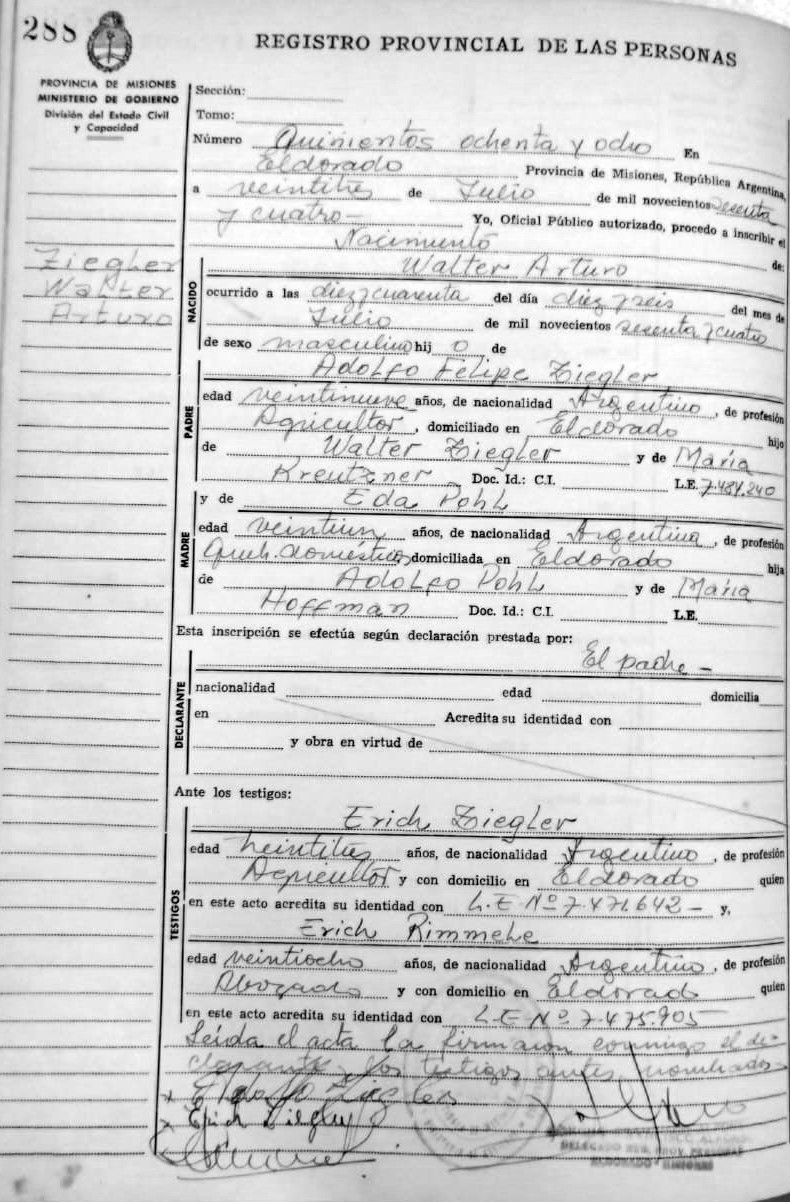 288
REGISTRO PROVINCIAL DE LAS PERSONAS
PROVINCIA DE MISIONES
MINISTERIO DE GOBIERNO
División del Estado Civil
y Capacidad
Ziegler
Walter
Arturo
Sección:
Tomo:
Número Quinientos ochenta y ocho En
Eldorado Provincia de Misiones, República Argentina,
a veintitrés de Julio de mil novecientos sesenta
y cuatro- Yo, Oficial Público autorizado, procedo a inscribir el
Nacimiento de:
NACIDO
Walter Arturo
ocurrido a las diez y cuarenta del día diez y seis del mes de
Julio de mil novecientos sesenta y cuatro
de sexo masculino hij o de
PADRE
Adolfo Felipe Ziegler
edad veintinueve años, de nacionalidad Argentino, de profesión
Agricultor, domiciliado en Eldorado hijo
de Walter Ziegler y de María
Kreutzner Doc. Id.: C.I. L.E. 7.484.240
MADRE
y de Eda Pohl
edad veintiun años, de nacionalidad Argentina, de profesión
Queh. domésticos, domiciliada en Eldorado hija
de Adolfo Pohl y de María
Hoffman Doc. Id.: C.I. L.E.
Esta inscripción se efectúa según declaración prestada por:
El padre -
DECLARANTE
nacionalidad edad domicilia
en Acredita su identidad con
y obra en virtud de
Ante los testigos:
TESTIGOS
Erich Ziegler
edad años, de nacionalidad Argentino, de profesión
Agricultor y con domicilio en Eldorado quien
en este acto acredita su identidad con L.E Nº 7.471.642- y,
Erich Rimmele
edad veintiocho años, de nacionalidad Argentino, de profesión
Abogado y con domicilio en Eldorado quien
en este acto acredita su identidad con L.E Nº 7.475.905
Leída el acta la firmaron conmigo el de-
clarante y los testigos antes nombrados
x
x Erich Ziegler
DELEGADO REG. PROV. PERSONAS
ELDORADO - MISIONES